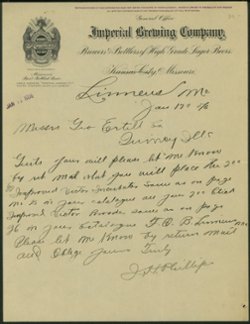 General Office
Imperial Brewing Company,
Brewers & Bottlers of High Grade Lager Beers.
Kansas City, Missouri.
Linneus Mo
Jan 12
Messrs Geo Ertell Co
Quincy Ills
Gents you will please let me know
by ret mail what you will place the 200
Improved Victor Incubator same as on page
in your catalogue and your 200 Chick
Improved Victor Brooder same as on page
36 in your Catalogue F. O. B. Linneus Mo
Please let me know by return mail
and Oblige Yours Truly
Phillips